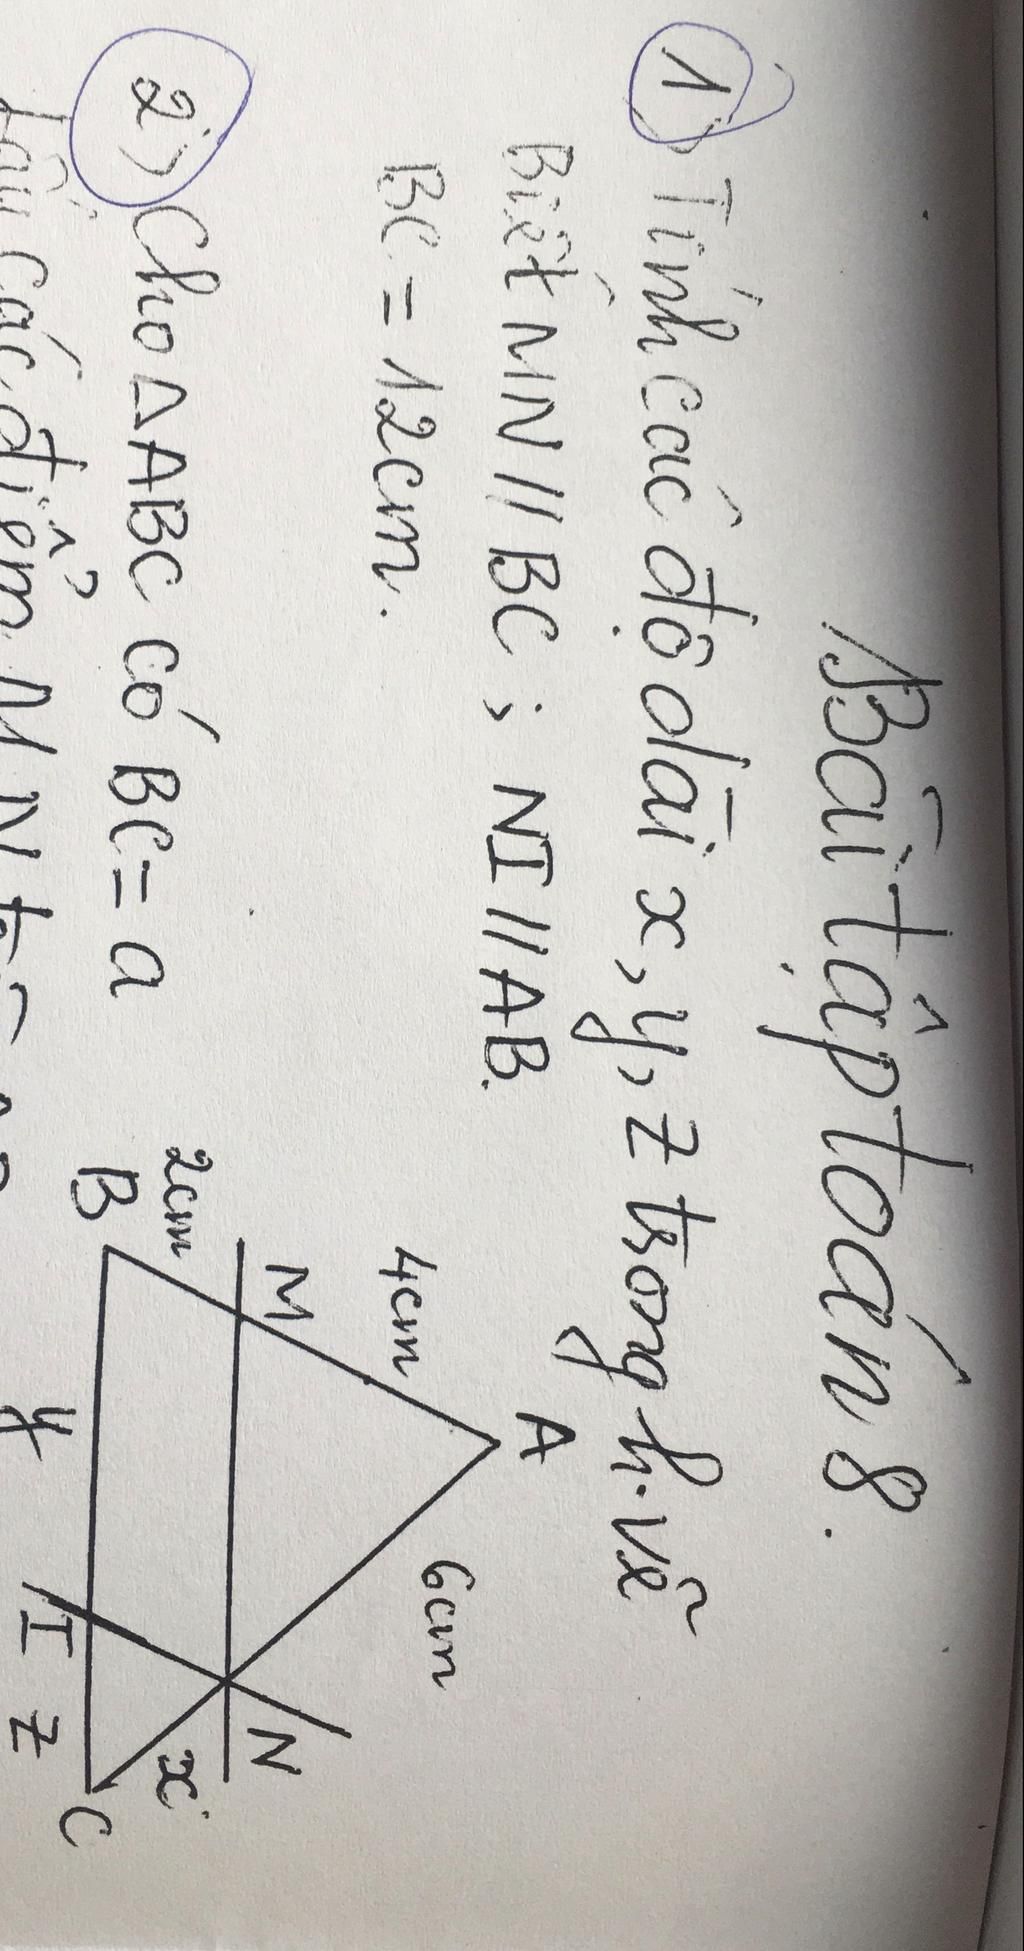 Bài tập toán 8.
1> Tính các độ dài x, y, z trong h.vẽ
Biết MN // BC ; NI // AB.
BC = 12cm.
A
4cm
6cm
M
N
2cm
x
B
y
I
z
C
2> Cho △ABC có BC = a
các điểm M, N